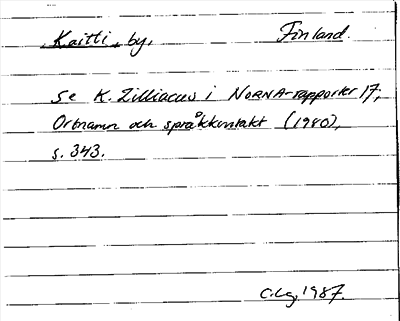 Kaitti, by, Finland.
se K. Zilliacus i NORNA-rapporter 17,
Ortnamn och språkkontakt (1980),
s. 343.
C.Lg. 1987.